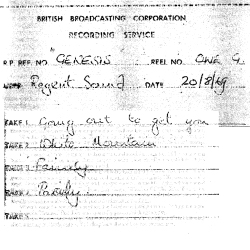 BRITISH BROADCASTING CORPORATION
RECORDING SERVICE
R.P. REF. NO. "GENESIS" REEL NO. ONE
Regent Sound DATE 20/8/69
TAKE 1 Going out to get you
TAKE 2 White Mountain
TAKE 3 Family
TAKE 4
TAKE 5